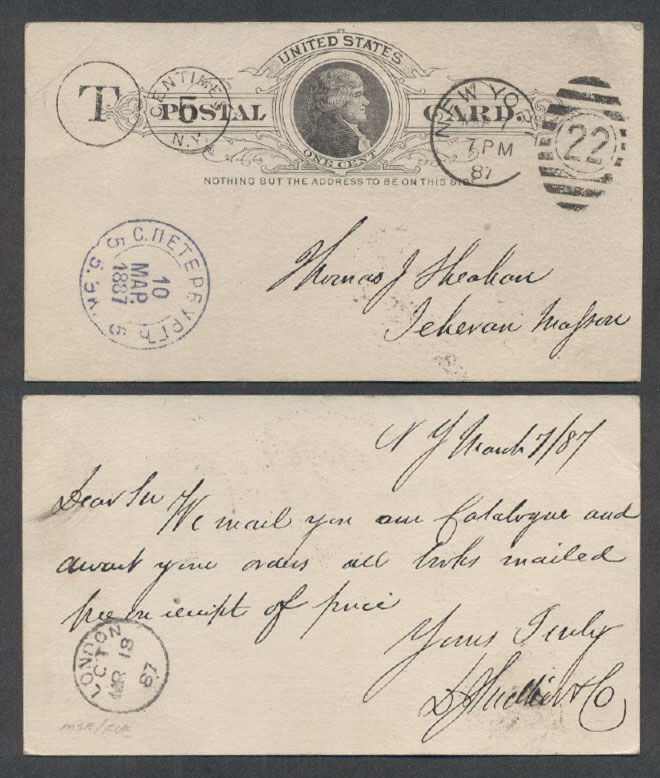 UNITED STATES
T
CENTIMES
5
N.Y.
POSTAL CARD.
ONE CENT
NOTHING BUT THE ADDRESS TO BE ON THIS SIDE
NEW YORK
7 PM
87
22
С.ПЕТЕРБУРГЪ
5
10
МАР.
1887
5
Thomas J Sheahan
Teheran
N Y March 7/87
Dear Sir We mail you our Catalogue and
await your orders all books mailed
free on receipt of price
Yours Truly
& Co
LONDON
MR 18
87